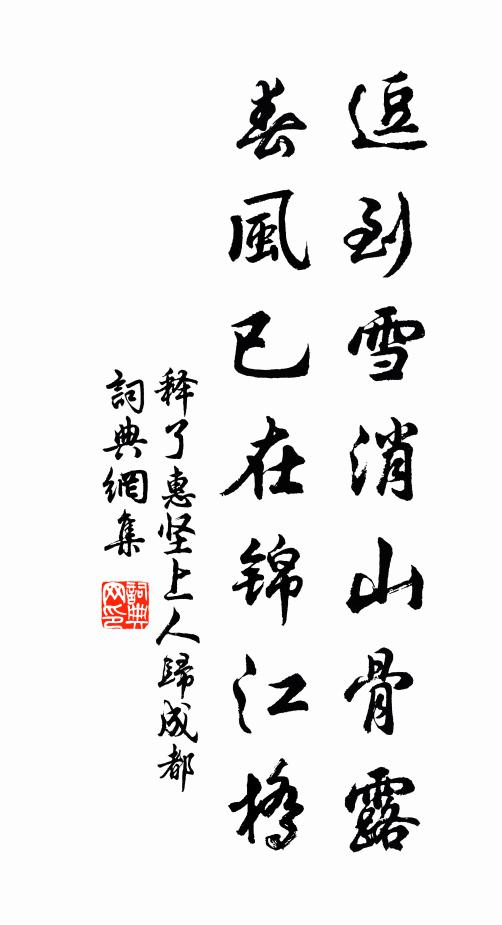 逗到雪消山骨露
春風已在锦江橋
释了惠坚上人歸成都
詞典網集
詞典
网印